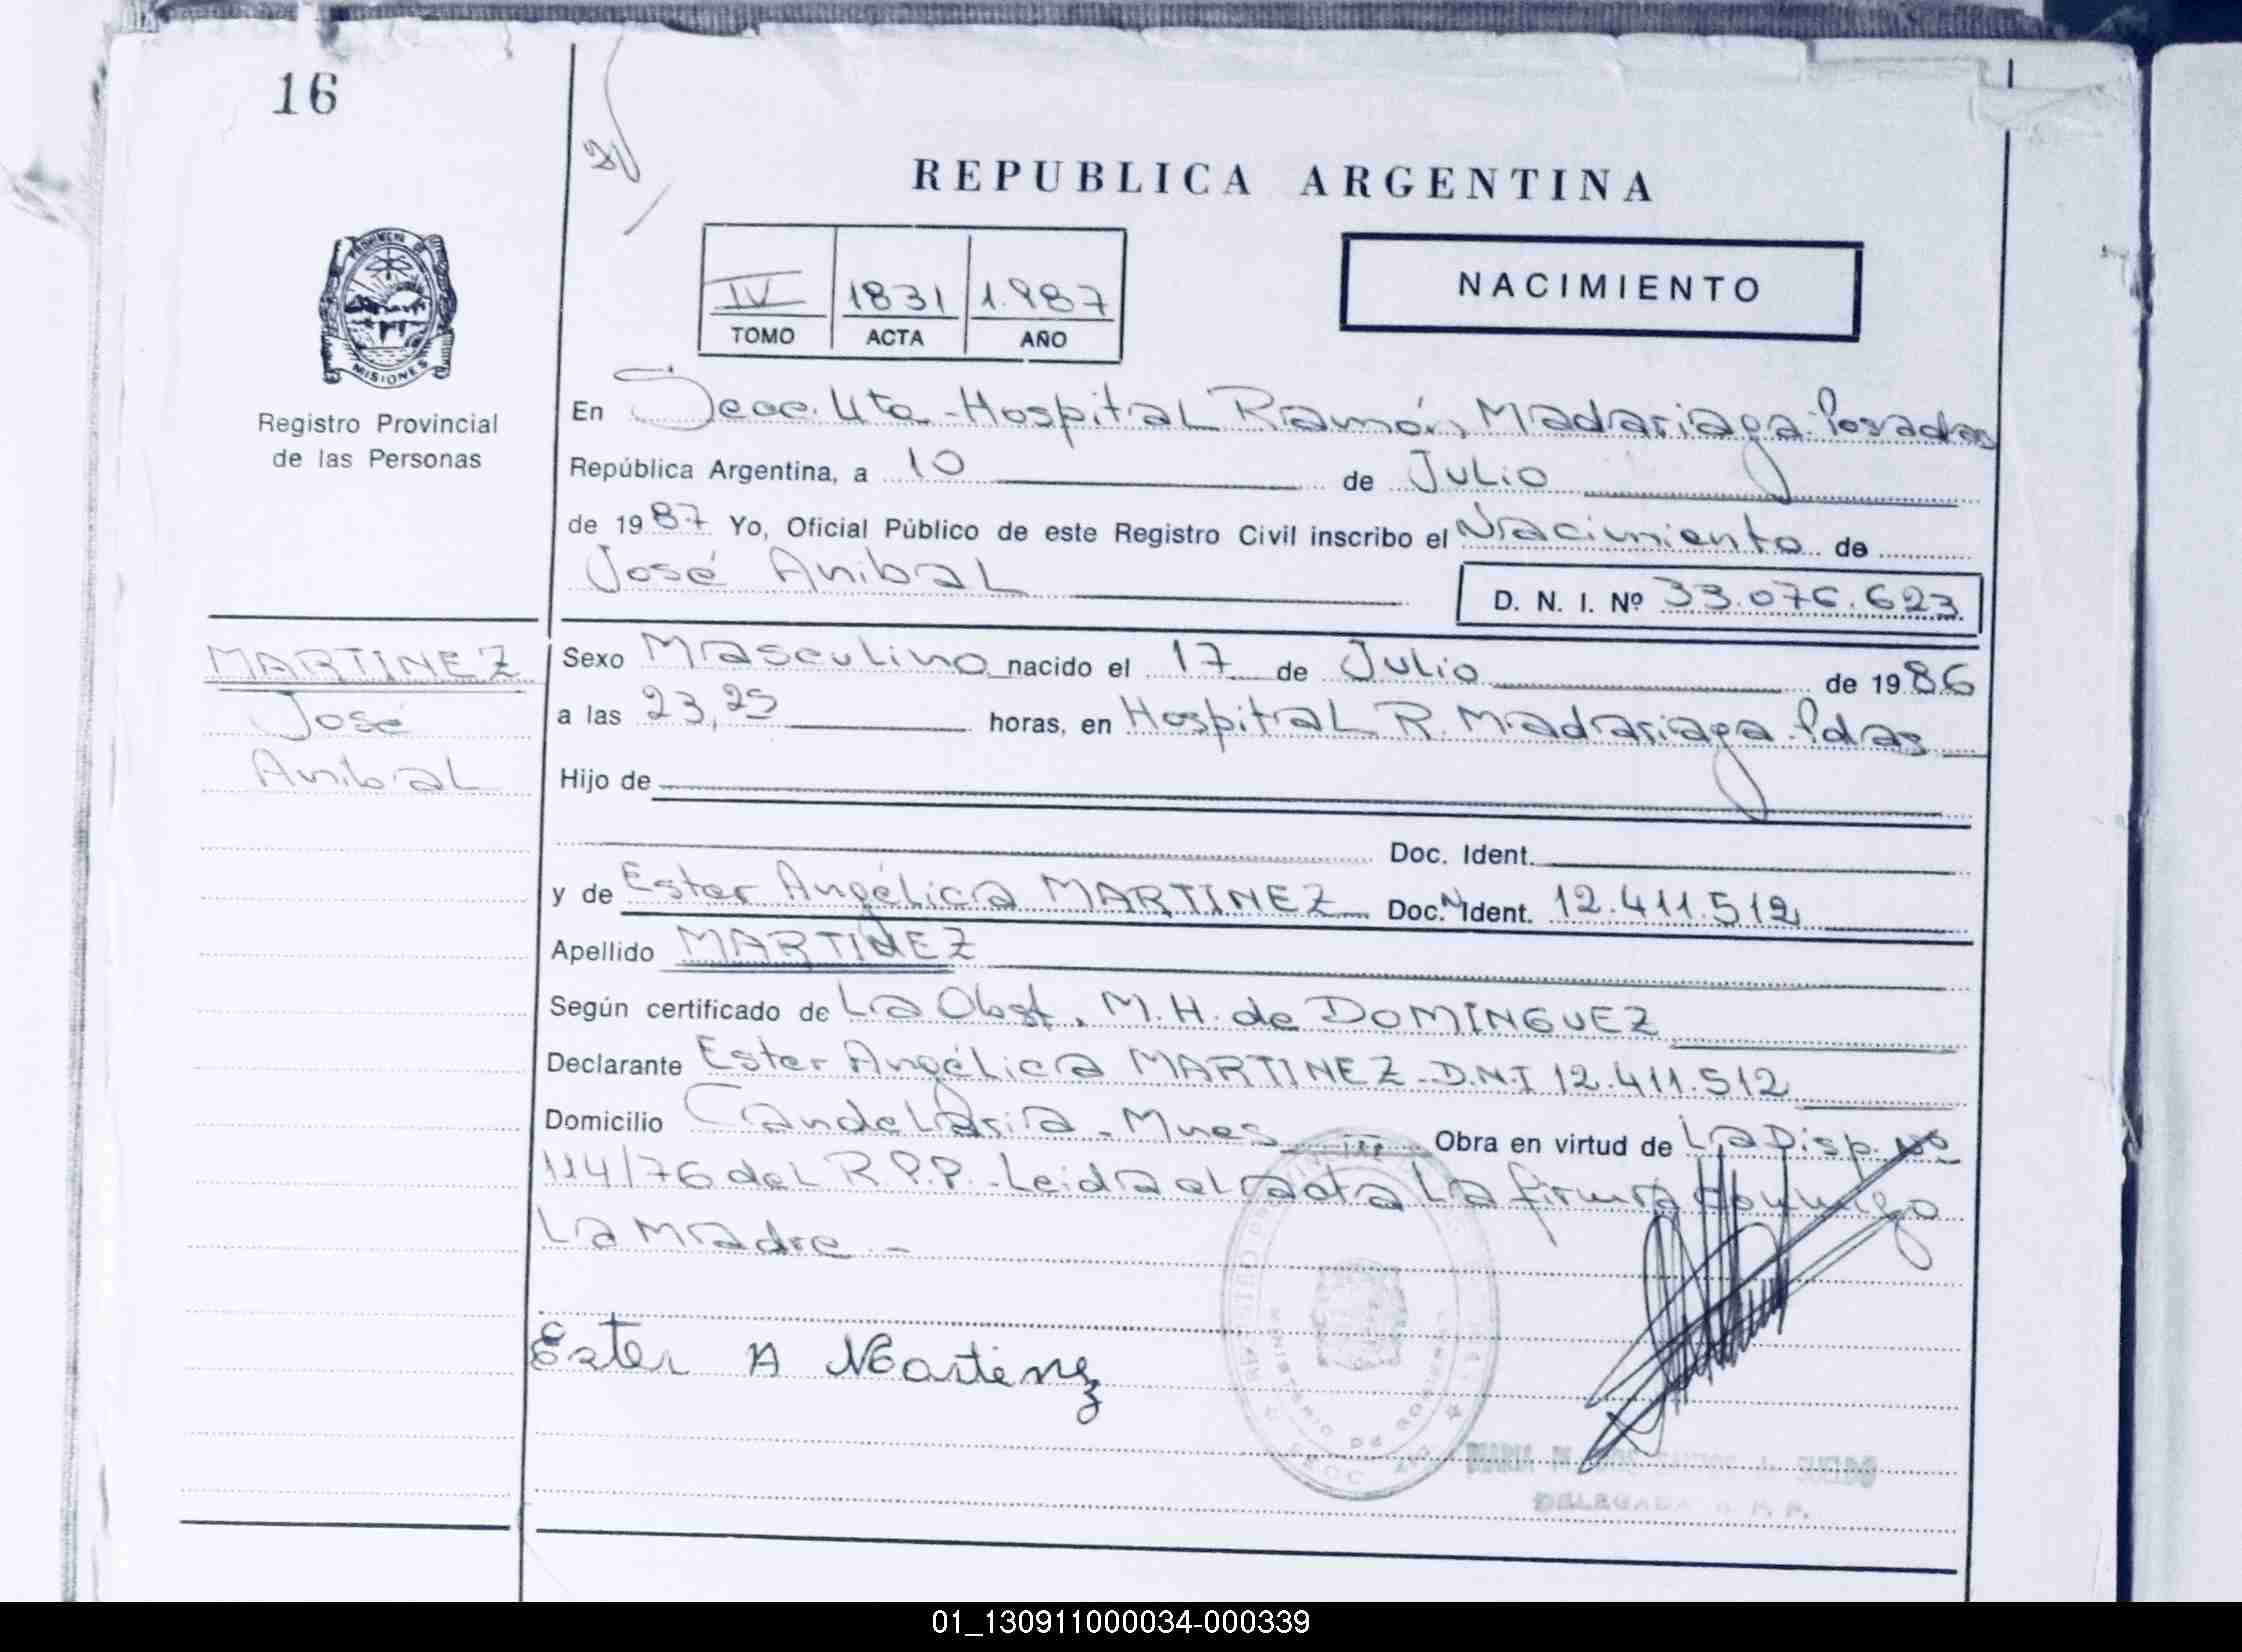 16
REPUBLICA ARGENTINA
IV 1831 1.987
TOMO ACTA AÑO
NACIMIENTO
PROVINCIA DE MISIONES
Registro Provincial
de las Personas
En Secc. 4ta - Hospital Ramón Madariaga - Posadas
República Argentina, a 10 de Julio
de 1987 Yo, Oficial Público de este Registro Civil inscribo el Nacimiento de
José Anibal D. N. I. Nº 33.076.623
MARTINEZ
José
Anibal
Sexo Masculino nacido el 17 de Julio de 1986
a las 23,25 horas, en Hospital R. Madariaga - Pdas
Hijo de
Doc. Ident.
y de Ester Angélica MARTINEZ Doc. N Ident. 12.411.512
Apellido MARTINEZ
Según certificado de La Obst. M. H. de DOMINGUEZ
Declarante Ester Angélica MARTINEZ - D.N.I 12.411.512
Domicilio Candelaria - Mnes Obra en virtud de La Disp. Nº
114/76 del R.P.P. - Leida el acta La firma conmigo
La Madre -
Ester A Martinez
MINISTERIO DE GOBIERNO
DELEGADA
01_130911000034-000339